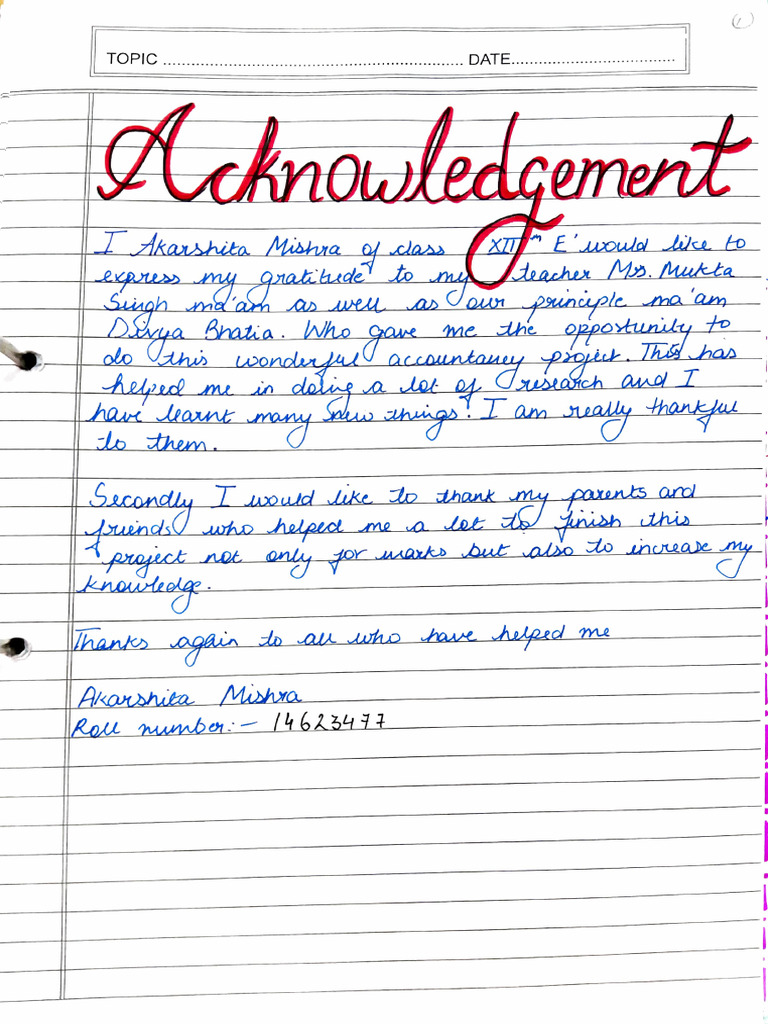 1
TOPIC ................................................................ DATE...................................
Acknowledgement
I Akarshita Mishra of class XIIth E' would like to
express my gratitude to my teacher Mrs. Mukta
Singh ma'am as well as our principle ma'am
Divya Bhatia. Who gave me the opportunity to
do this wonderful accountancy project. This has
helped me in doing a lot of research and I
have learnt many new things. I am really thankful
to them.
Secondly I would like to thank my parents and
friends who helped me a lot to finish this
project not only for marks but also to increase my
knowledge.
Thanks again to all who have helped me
Akarshita Mishra
Roll number:- 14623477